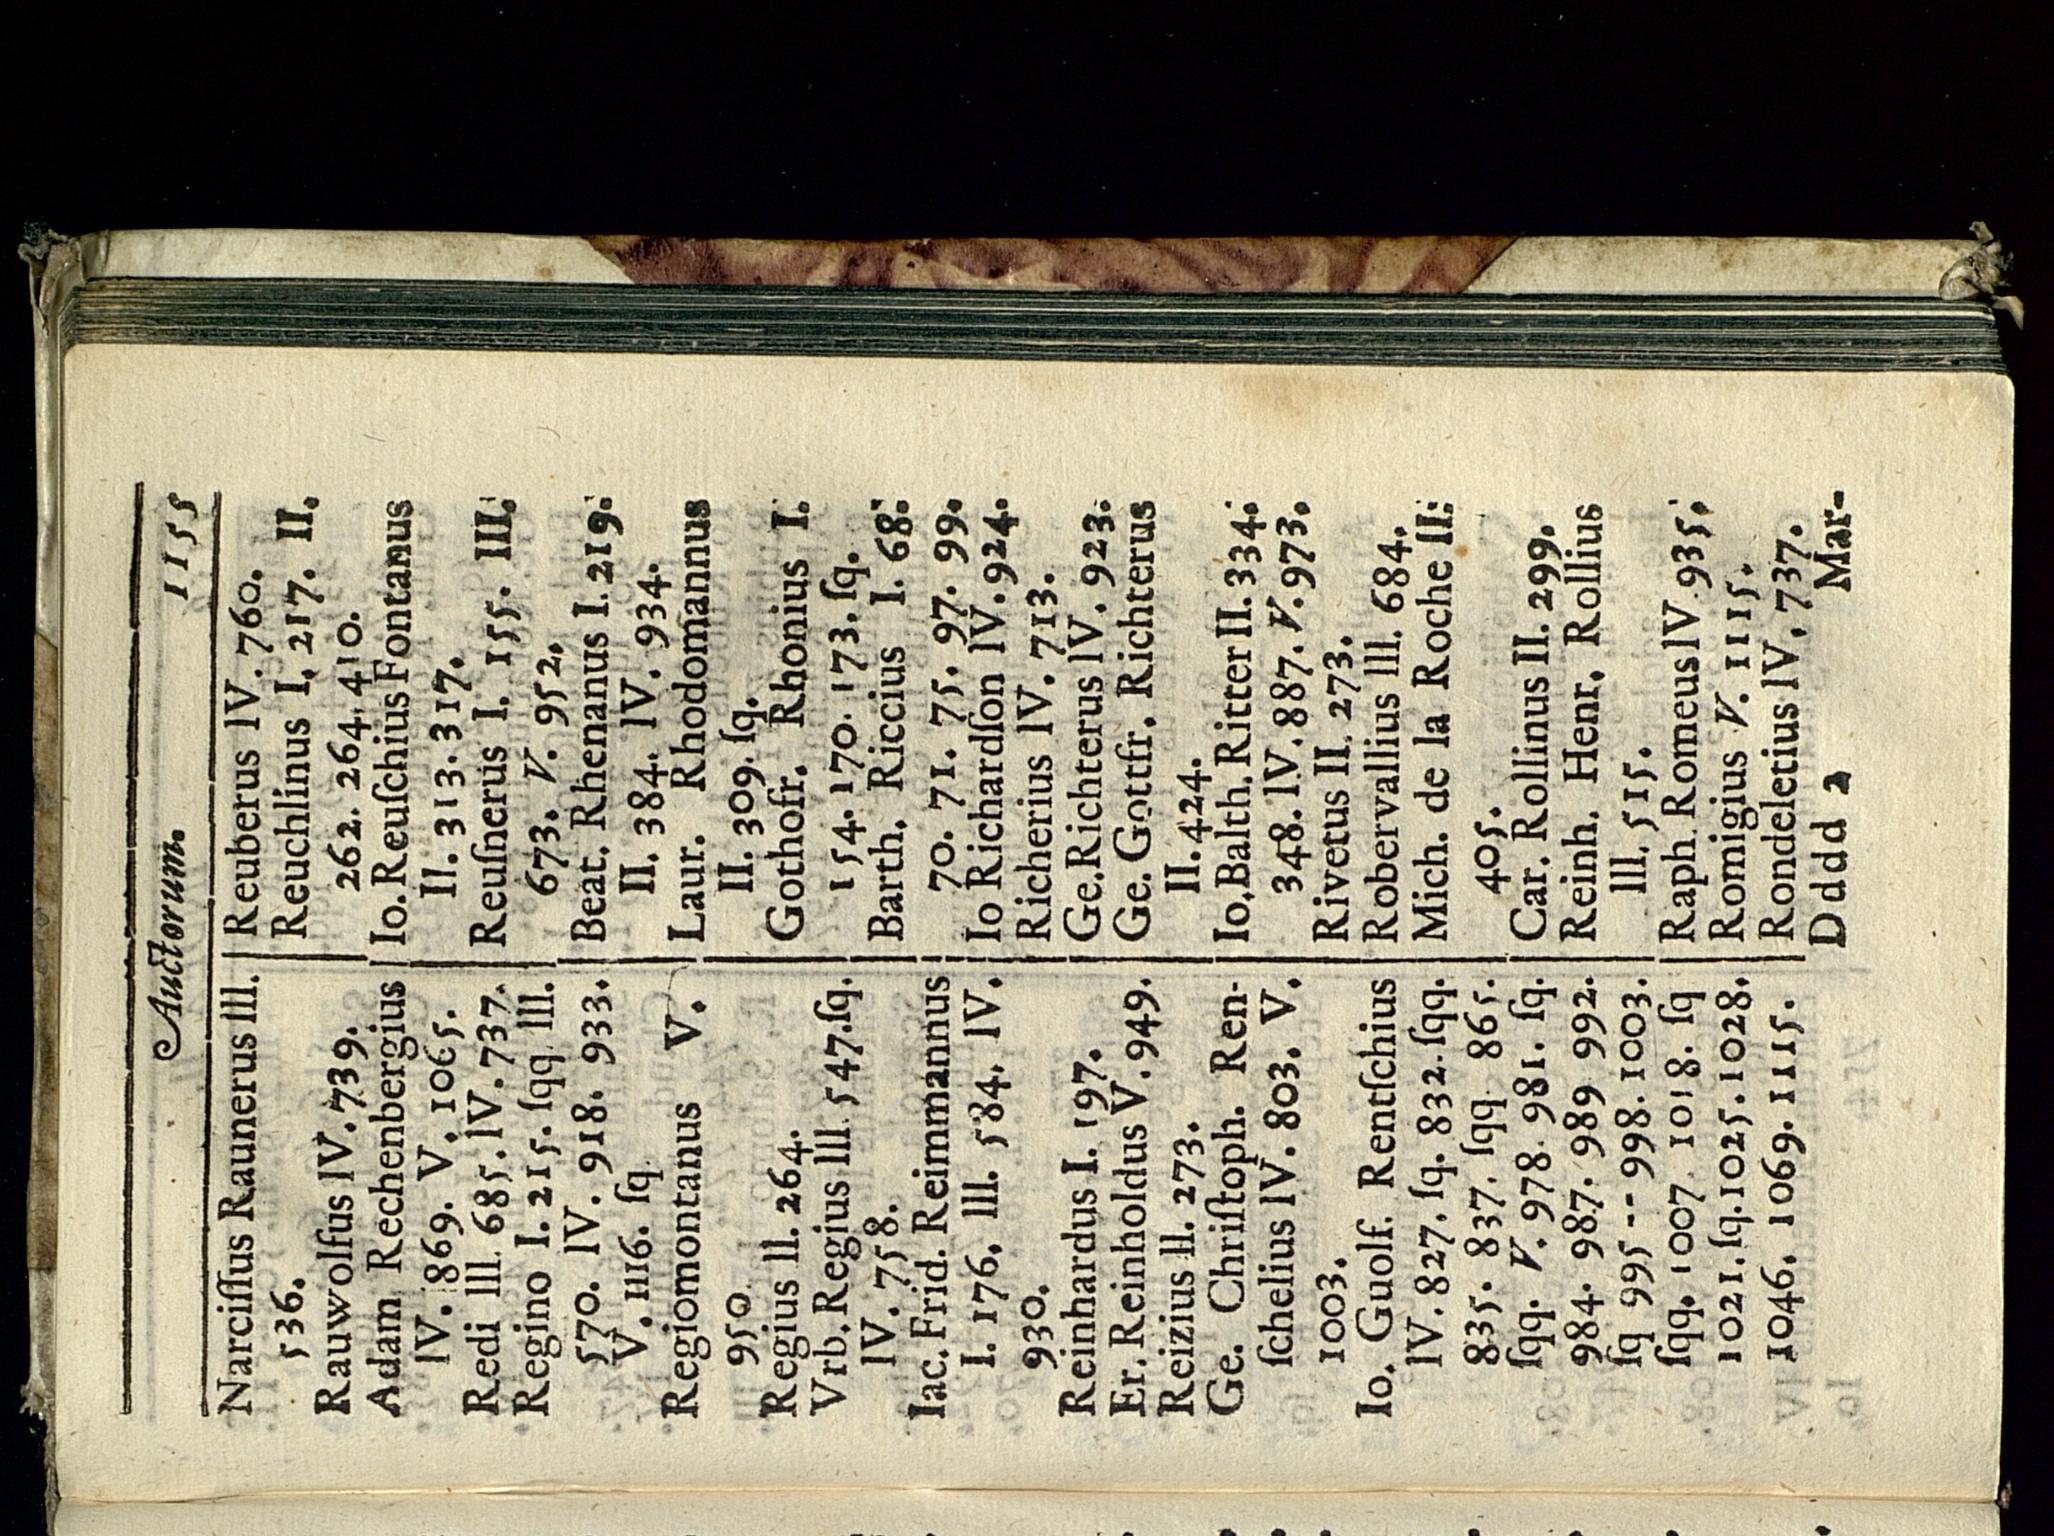 Auctorum. 1155
Narciſſus Raunerus III.
536.
Rauwolfus IV. 739.
Adam Rechenbergius
IV. 869. V. 1065.
Redi III. 685. IV. 737.
Regino I. 215. ſqq III.
570. IV. 918. 933.
V. 1116. ſq
Regiomontanus V.
950
Regius II. 264.
Vrb. Regius III. 547. ſq.
IV. 758.
Iac. Frid. Reimmannus
I. 176. III. 584. IV.
930.
Reinhardus I. 197.
Er. Reinholdus V. 949.
Reizius II. 273.
Ge. Chriſtoph. Ren-
ſchelius IV. 803. V.
1003.
Io. Guolf. Rentſchius
IV. 827. ſq. 832. ſqq.
835. 837. ſqq. 865.
ſqq. V. 978. 981. ſq.
984. 987. 989 992.
ſq 995 -- 998. 1003.
ſqq. 1007. 1018. ſq
1021. ſq. 1025. 1028.
1046. 1069. 1115.
Reuberus IV. 760.
Reuchlinus I, 217. II.
262. 264. 410.
Io. Reuſchius Fontanus
II. 313. 317.
Reuſnerus I. 155. III.
673. V. 952.
Beat. Rhenanus I. 219.
II. 384. IV. 934.
Laur. Rhodomannus
II. 309. ſq.
Gothofr. Rhonius I.
154. 170. 173. ſq.
Barth. Riccius I. 68.
70. 71. 75. 97. 99.
Io Richardſon IV. 924.
Richerius IV. 713.
Ge. Richterus IV. 923.
Ge. Gottfr. Richterus
II. 424.
Io. Balth. Ritter II. 334.
348. IV. 887. V. 973.
Rivetus II. 273.
Robervallius III. 684.
Mich. de la Roche II:
405.
Car. Rollinus II. 299.
Reinh. Henr. Rollius
III. 515.
Raph. Romeus IV. 935.
Romigius V. 1115.
Rondeletius IV. 737.
Dddd 2 Mar-